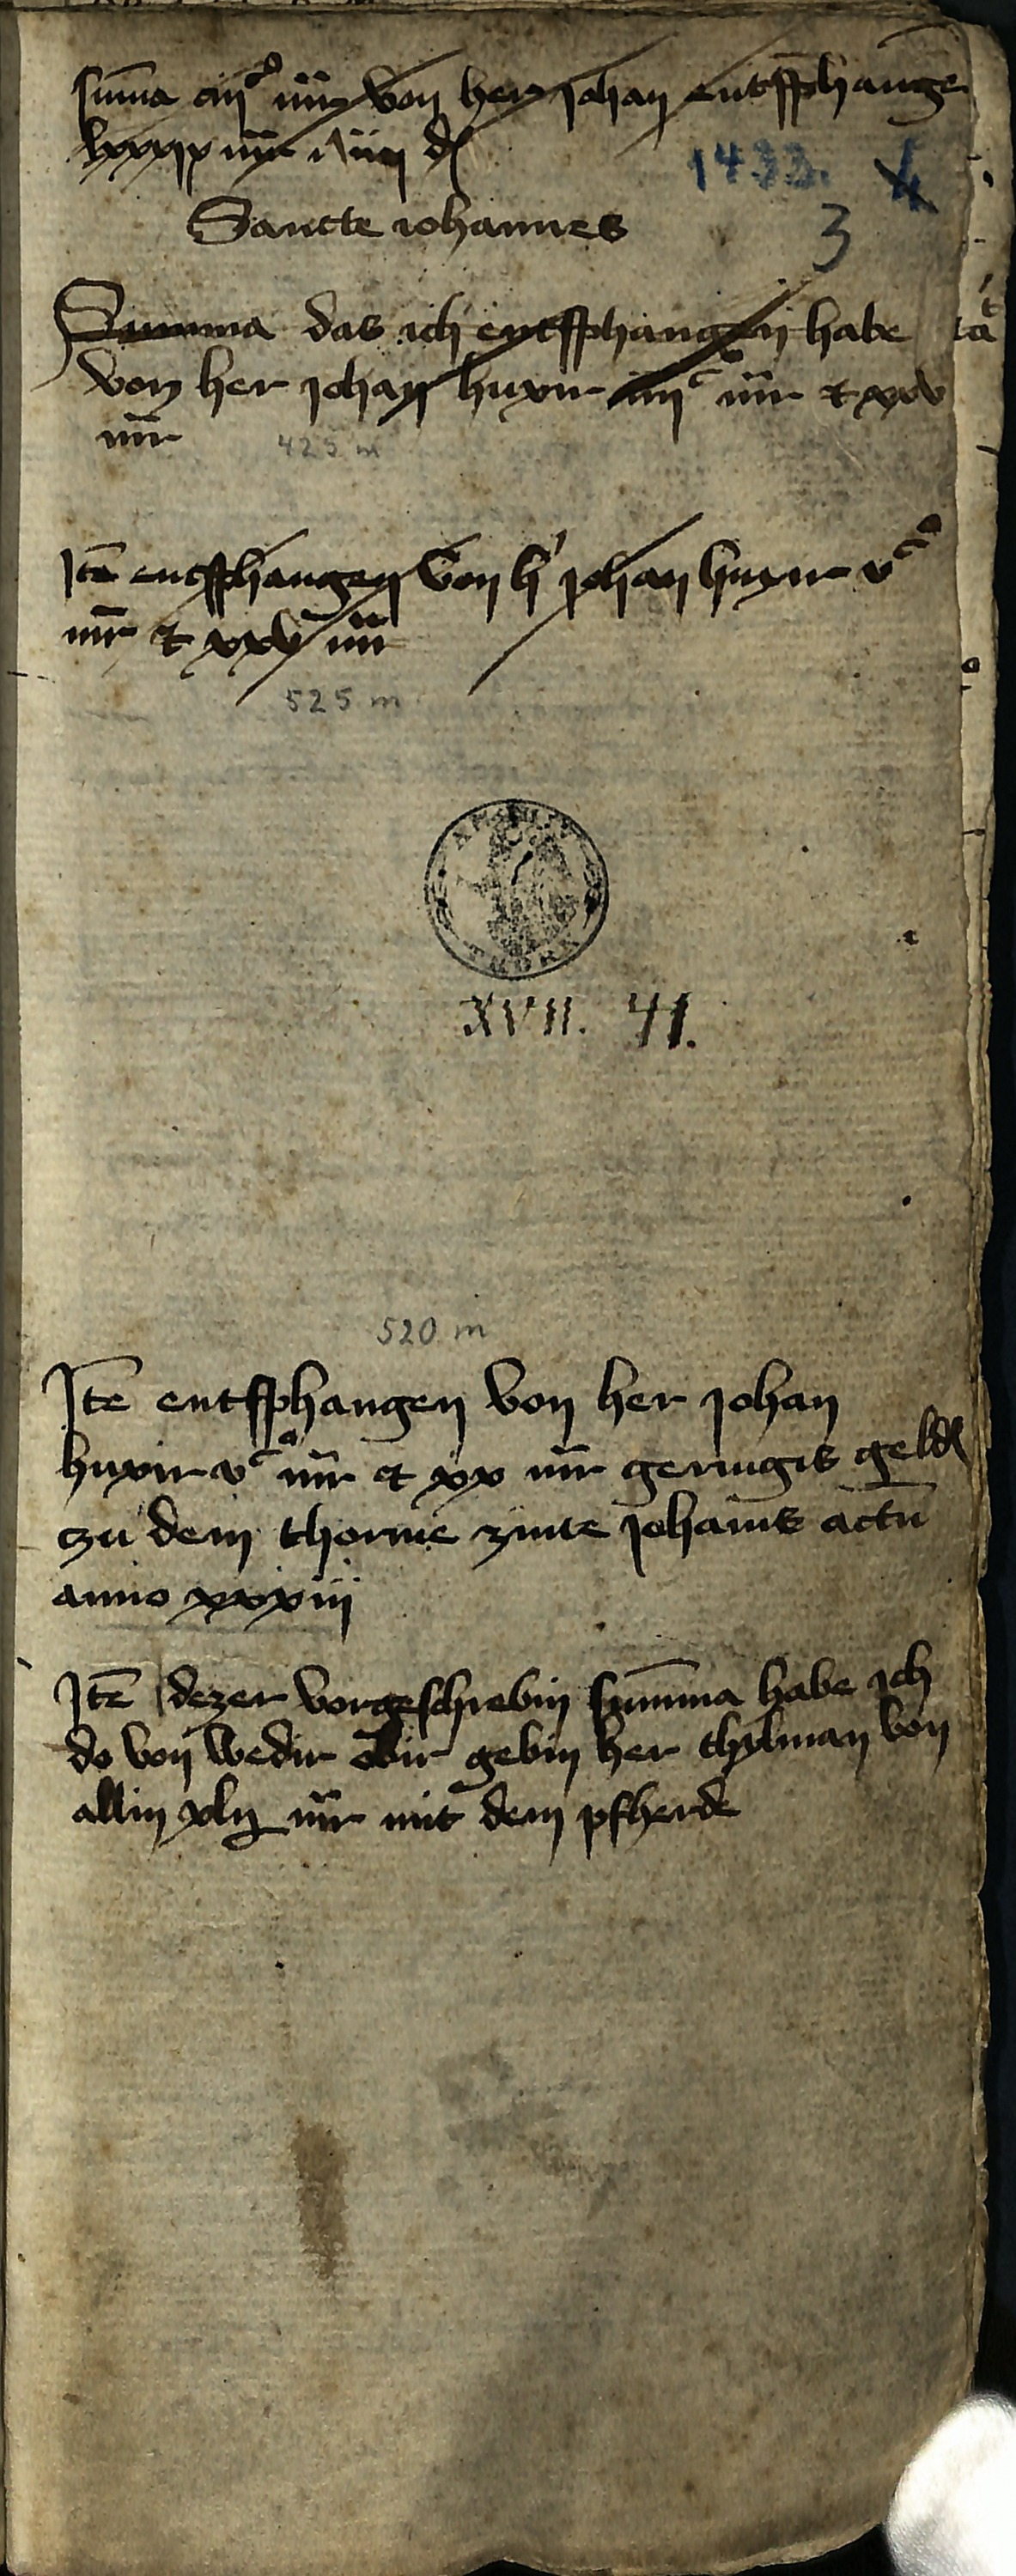 summa iiijᶜ mr von her johan entfphange
lxxxix mr
1433. 4
Sancte iohannes
3
Summa das ich entfphangen habe
von her johan huxir iiijᶜ mr et xxv
mr
425 m
Itē entfphangen von h' johan huxir vᶜ
mr et xxv mr
525 m
ARCHIV THORN
XVII. 41.
520 m
Itē entfphangen von her johan
huxir vᶜ mr et xx mr geringis geld
czu dem thorme zinte johānis actū
anno xxxiij
Itē dezer vorgeschrebin summa habe ich
do von wedir obir gebin her thylman von
allin xlij mr mit dem pfherde